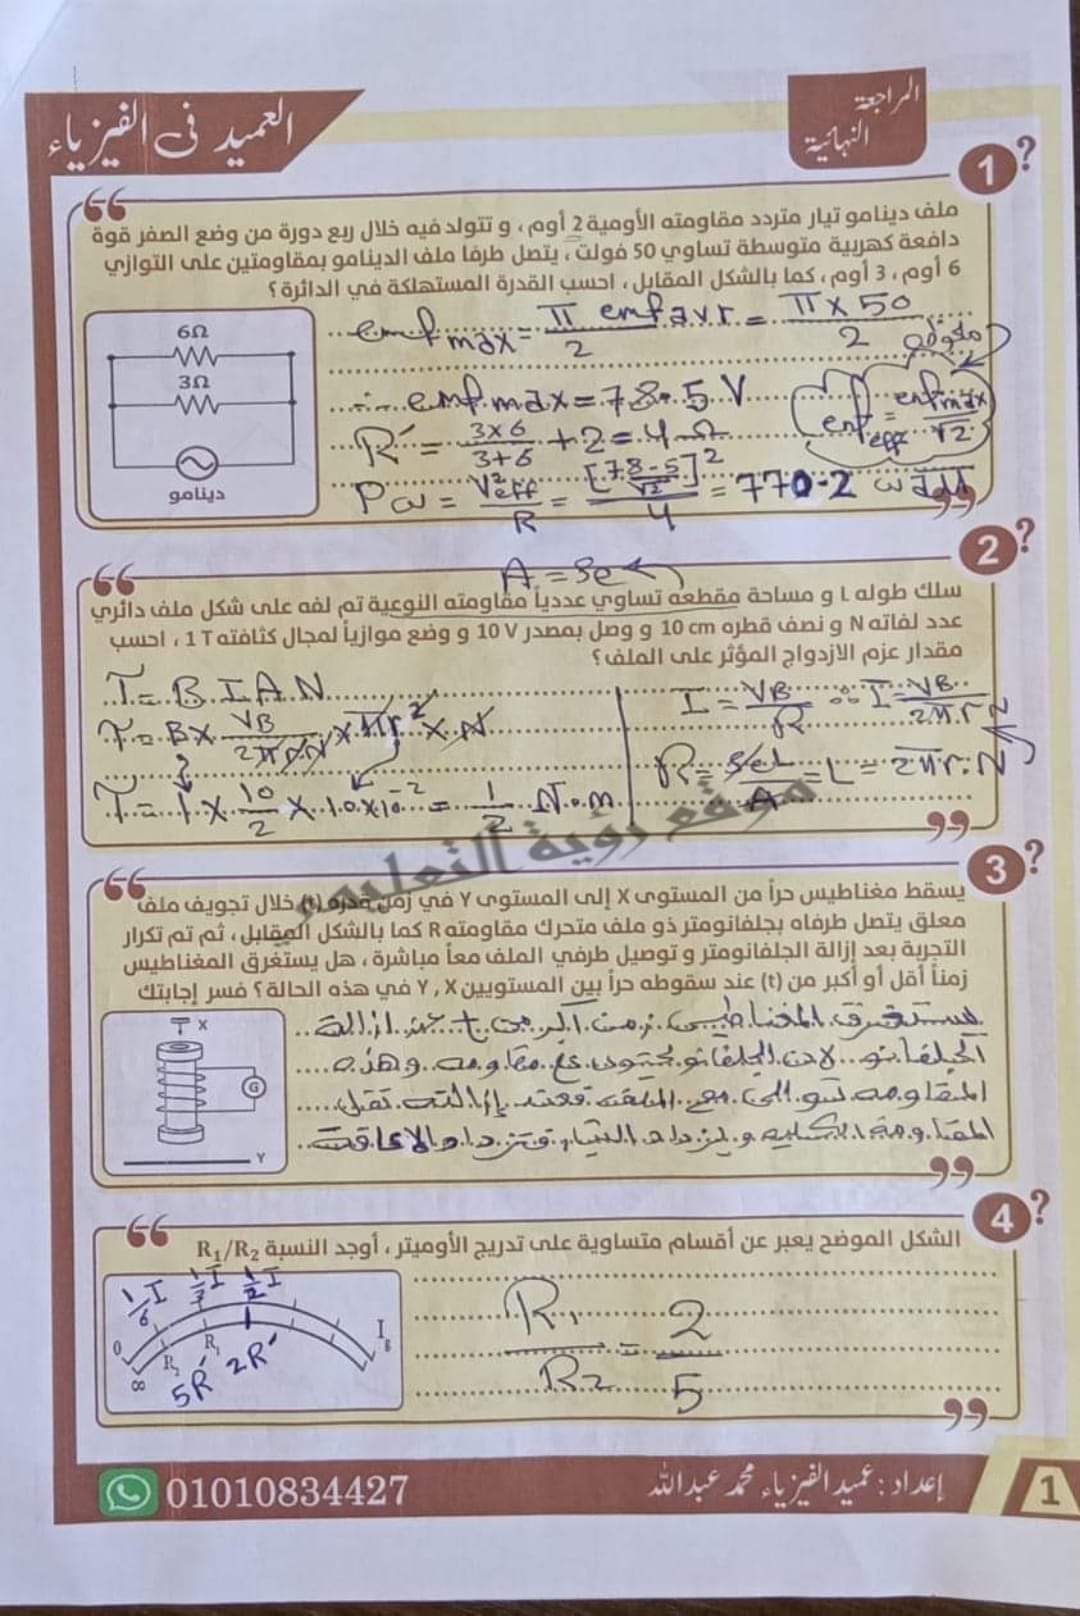 العميد فى الفيزياء
المراجعة
النهائية
1 ?
ملف دينامو تيار متردد مقاومته الأومية 2 أوم، و تتولد فيه خلال ربع دورة من وضع الصفر قوة
دافعة كهربية متوسطة تساوي 50 فولت، يتصل طرفا ملف الدينامو بمقاومتين على التوازي
6 أوم، 3 أوم، كما بالشكل المقابل، احسب القدرة المستهلكة في الدائرة؟
6Ω
3Ω
دينامو
emf max = π emf avr / 2 = π × 50 / 2
∴ emf max = 78.5 V
emf eff = emf max / √2
R' = 3×6 / 3+6 + 2 = 4 Ω
Pw = V²eff / R = [78.5 / √2]² / 4 = 770.2 watt
2 ?
A = ρe
سلك طوله L و مساحة مقطعه تساوي عددياً مقاومته النوعية تم لفه على شكل ملف دائري
عدد لفاته N و نصف قطره 10 cm و وصل بمصدر 10 V و وضع موازياً لمجال كثافته 1 T، احسب
مقدار عزم الازدواج المؤثر على الملف؟
T = B I A N
T = B × VB / 2πrN × πr² × N
T = 1 × 10 / 2 × 10×10⁻² = 1 / 2 N.m
I = VB / R ∴ I = VB / 2πr N
R = ρe L / A = L = 2πr.N
موقع رؤية التعليمي
3 ?
يسقط مغناطيس حراً من المستوى X إلى المستوى Y في زمن قدره (t) خلال تجويف ملف
معلق يتصل طرفاه بجلفانومتر ذو ملف متحرك مقاومته R كما بالشكل المقابل، ثم تم تكرار
التجربة بعد إزالة الجلفانومتر و توصيل طرفي الملف معاً مباشرة، هل يستغرق المغناطيس
زمناً أقل أو أكبر من (t) عند سقوطه حراً بين المستويين Y , X في هذه الحالة؟ فسر إجابتك
X
G
Y
يستغرق المغناطيس زمن أكبر من t عند ازالة
الجلفانو لان الجلفانو يحتوى على مقاومه وهذه
المقاومه توالى مع الملف فعند إزالته تقل
المقاومة الكليه ويزداد التيار فتزداد الاعاقة
4 ?
الشكل الموضح يعبر عن أقسام متساوية على تدريج الأوميتر، أوجد النسبة R₁/R₂
1/6 I 1/3 I 1/2 I
0 Ig
R₂ R₁
∞ 5R' 2R'
R₁ / R₂ = 2 / 5
01010834427
إعداد: عميد الفيزياء محمد عبدالله
1